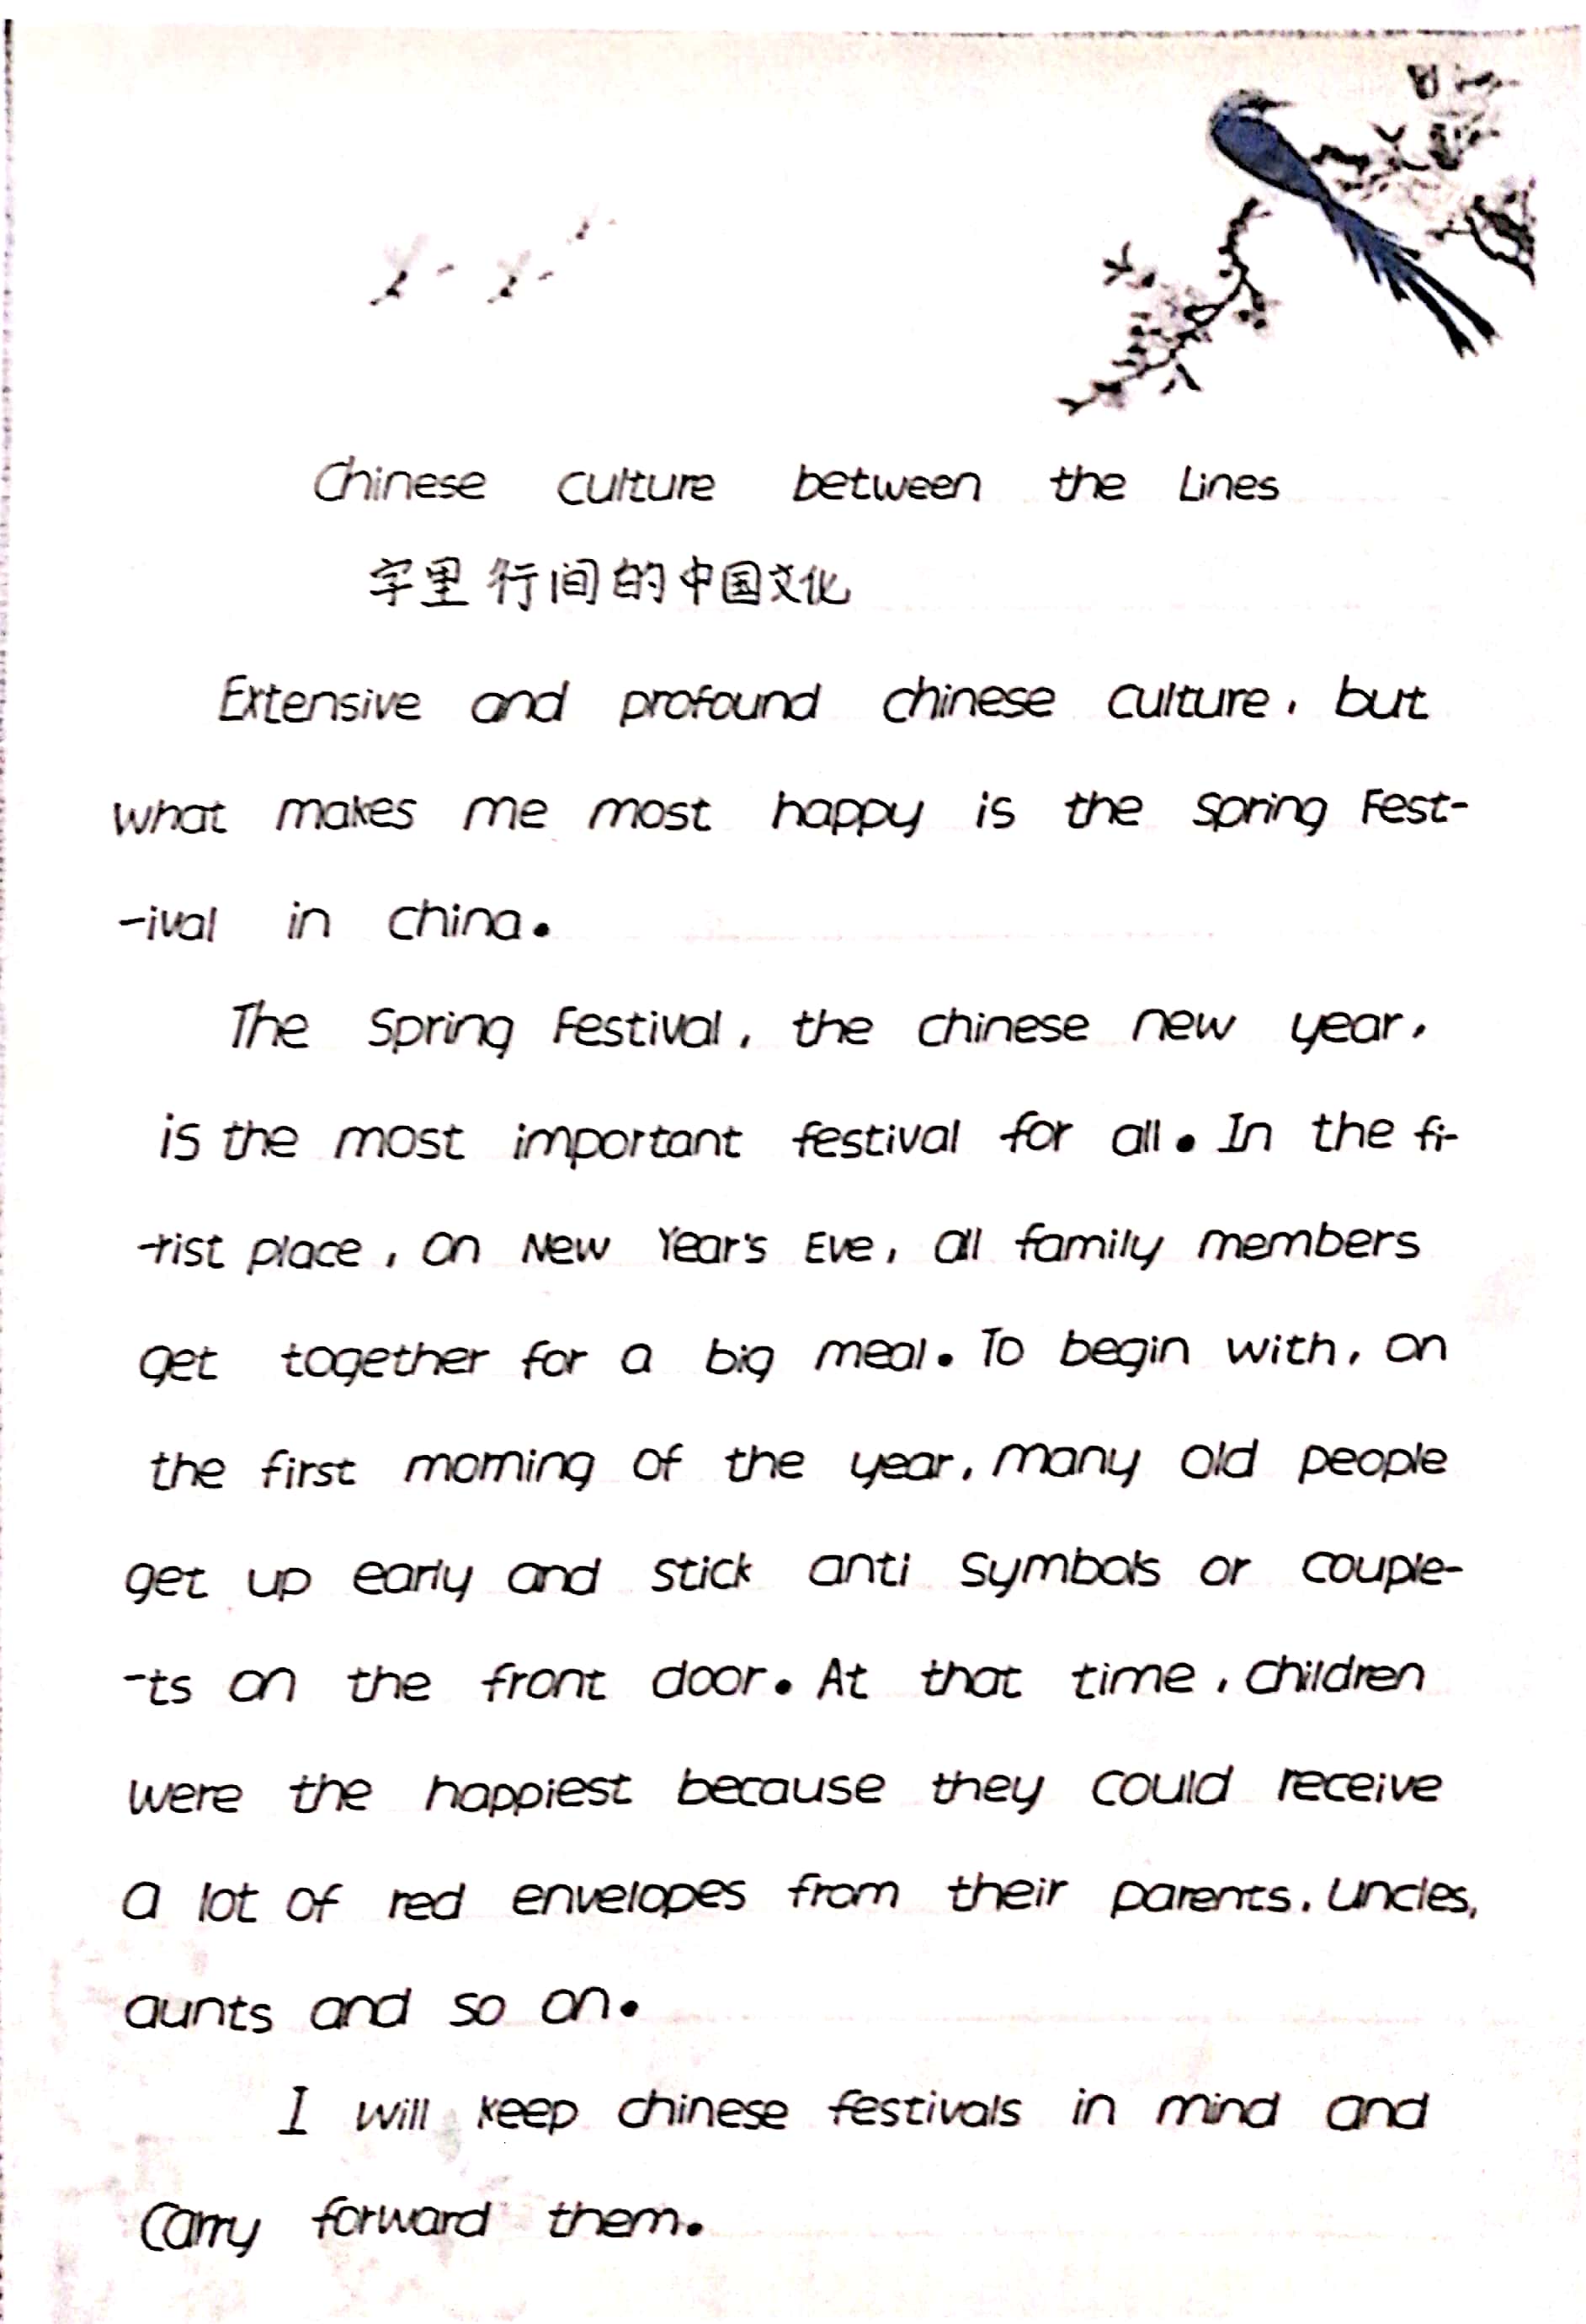 Chinese culture between the Lines
字里行间的中国文化
Extensive and profound chinese culture, but
what makes me most happy is the Spring Fest-
-ival in china.
The Spring Festival, the chinese new year,
is the most important festival for all. In the fi-
-rist place, on New Year's Eve, all family members
get together for a big meal. To begin with, on
the first morning of the year, many old people
get up early and stick anti symbols or couple-
-ts on the front door. At that time, children
were the happiest because they could receive
a lot of red envelopes from their parents, uncles,
aunts and so on.
I will keep chinese festivals in mind and
carry forward them.